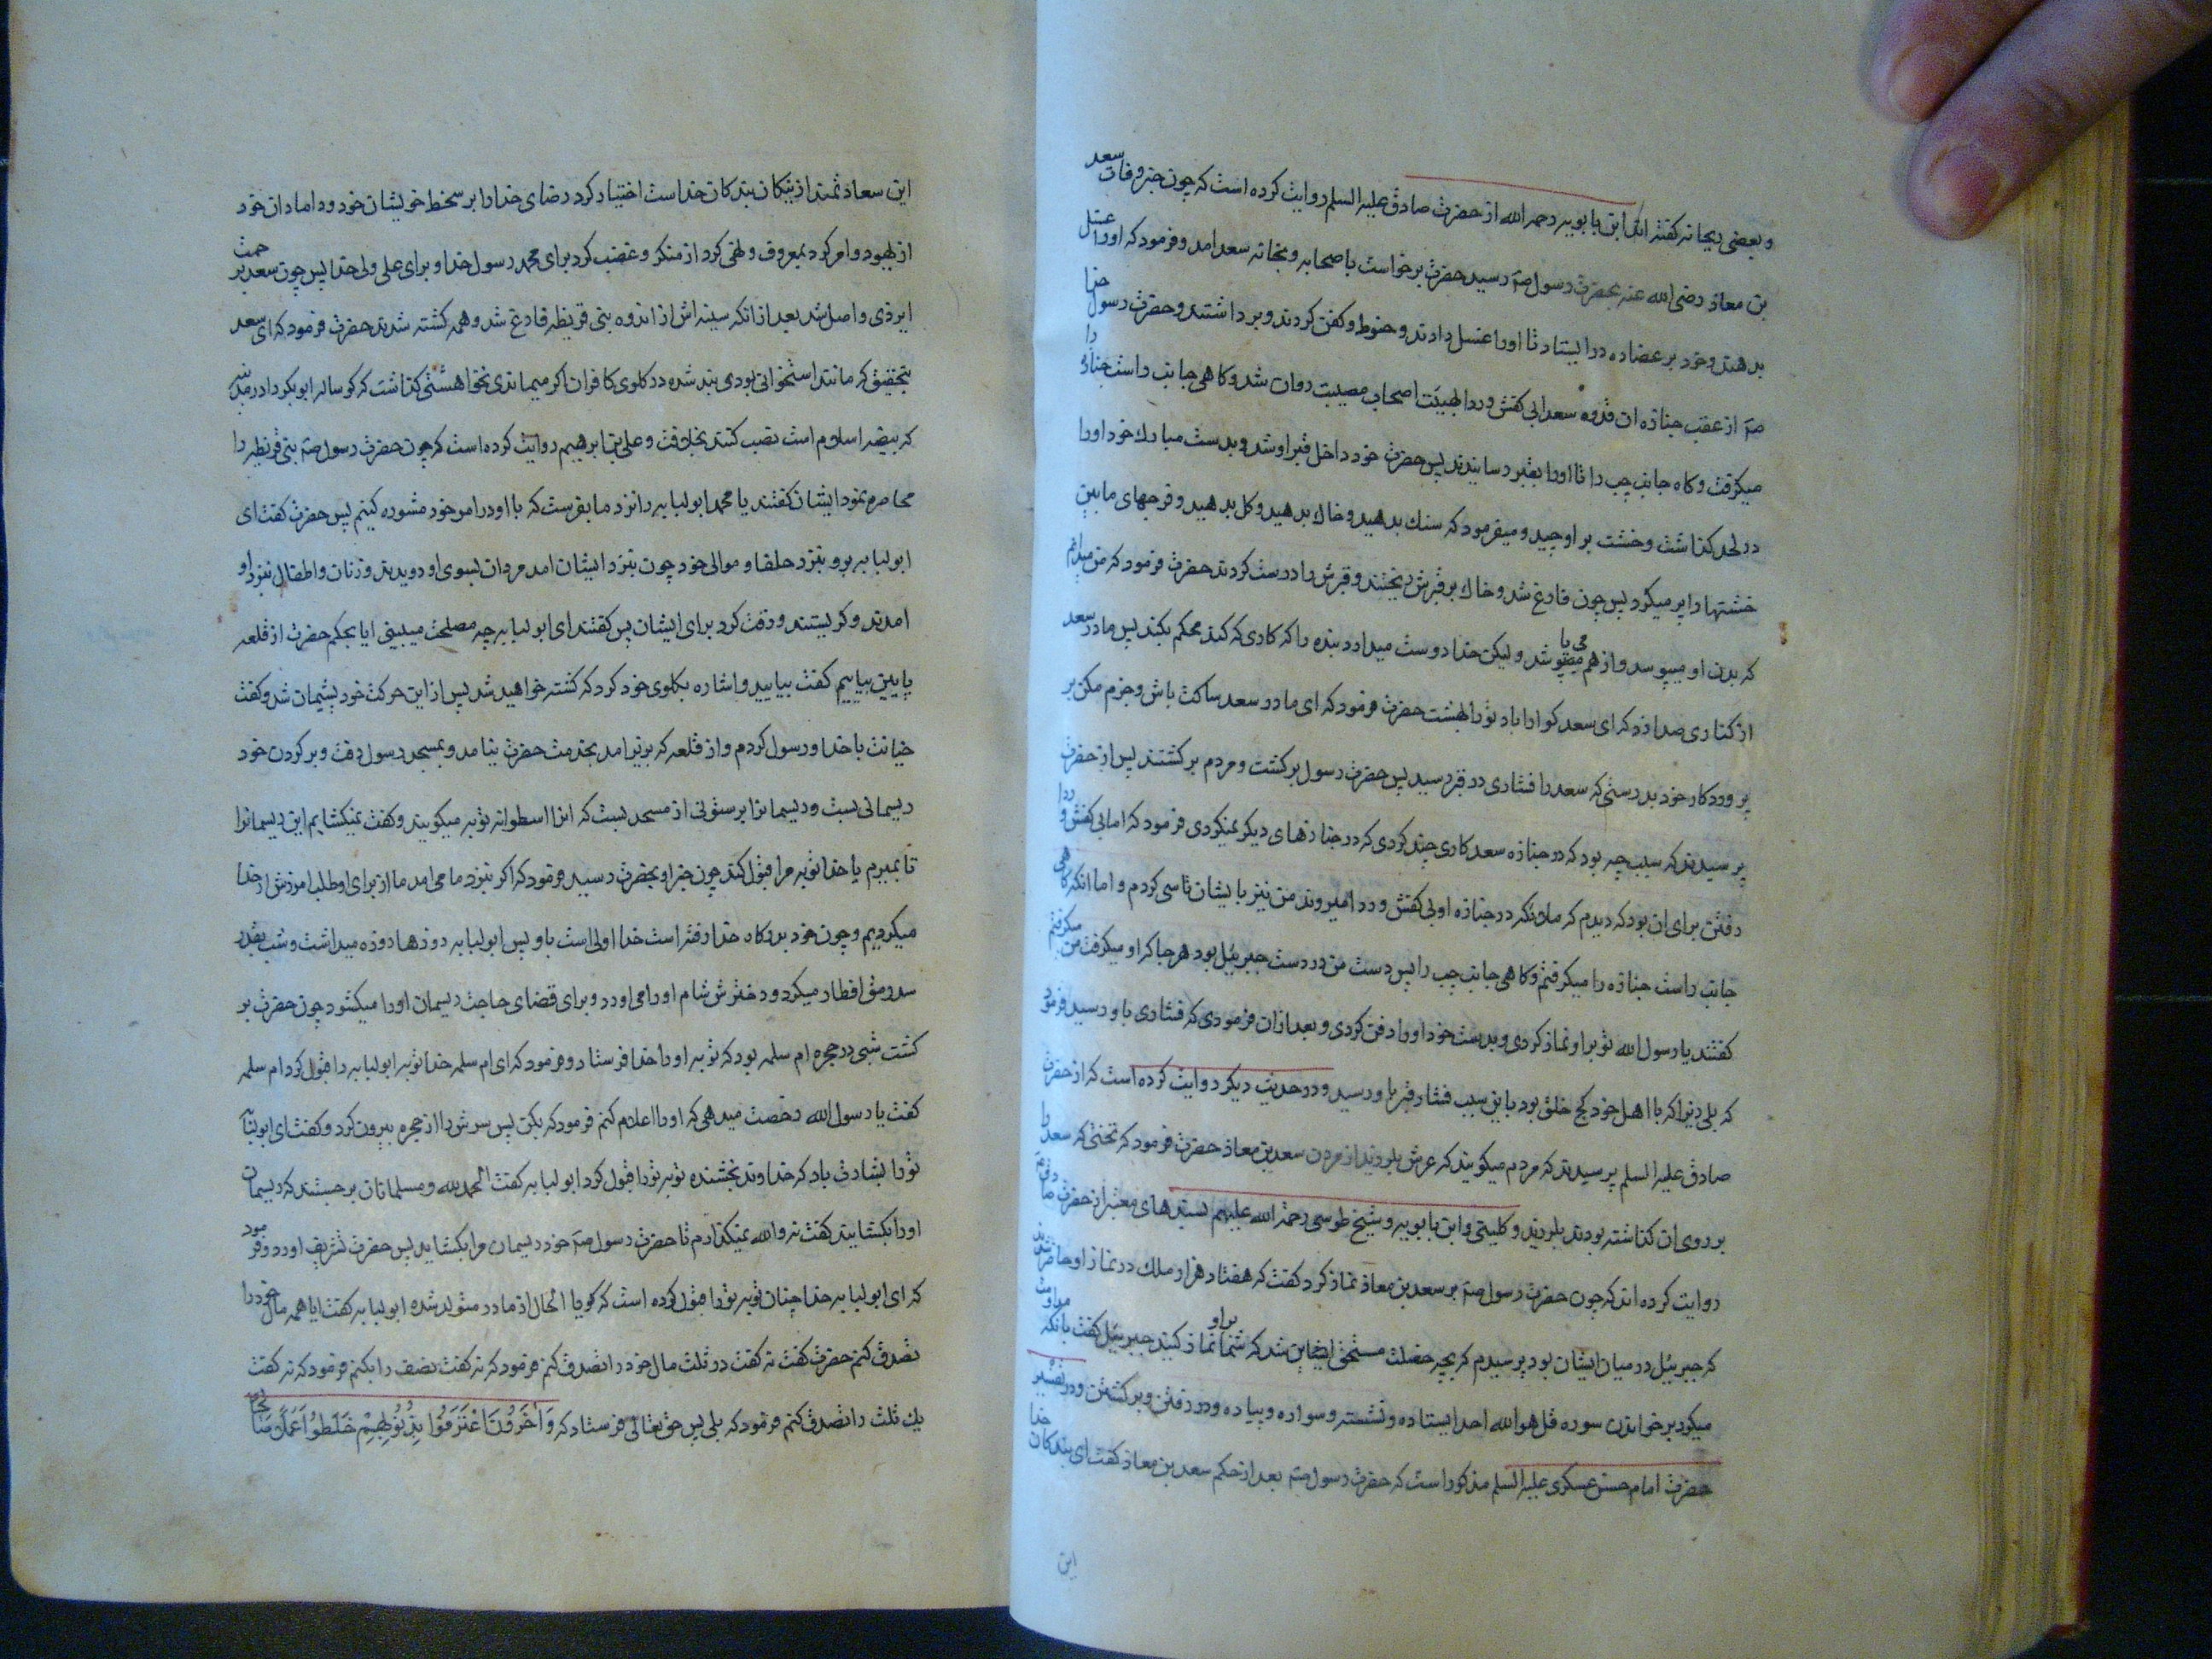 و بعضی ریحانه گفته اند ابن بابویه رحمه الله از حضرت صادق علیه السلم روایت کرده است که چون خبر وفات سعد
بن معاذ رضی الله عنه بحضرت رسول صم رسید حضرت برخواست با صحابه و بخانه سعد امد و فرمود که اورا غسل
بدهند و خود بر عضاده در ایستاد تا اورا غسل دادند و حنوط و کفن کردند و برداشتند و حضرت رسول خدا
صم از عقب جنازه ان قدوه سعدا بی کفش و ردا بهیئت اصحاب مصیبت روان شد و کاهی جانب راست جنازه را
میکرفت و کاه جانب چپ را تا اورا بقبر رسانیدند پس حضرت خود داخل قبر او شد و بدست مبارك خود اورا
در لحد کذاشت و خشت بر او چید و میفرمود که سنك بدهید و خاك بدهید و کل بدهید و فرجهای مابین
خشتها را پر میکرد پس چون فارغ شد و خاك بر قبرش ریختند و قبرش را درست کردند حضرت فرمود که من میدانم
که بدن او میپوسد و از هم می پاشد و لیکن خدا دوست میدارد بنده را که کاری که کند محکم بکند پس مادر سعد
از کناری صدا زد که ای سعد کوارا باد تورا بهشت حضرت فرمود که ای مادر سعد ساکت باش و جزم مکن بر
پروردکار خود بدرستی که سعد را فشاری در قبر رسید پس حضرت رسول برکشت و مردم برکشتند پس از حضرت
پرسیدند که سبب چه بود که در جنازه سعد کاری چند کردی که در جنازهای دیکر نمیکردی فرمود که اما بی کفش و ردا
رفتن برای ان بود که دیدم که ملائکه در جنازه او بی کفش و ردا میروند من نیز با یشان تاسی کردم و اما انکه کاهی
جانب راست جنازه را میکرفتم و کاهی جانب چپ را پس دست من در دست جبرئیل بود هر جا که او میکرفت من میکرفتم
کفتند یا رسول الله تو بر او نماز کردی و بدست خود اورا دفن کردی و بعد ازان فرمودی که فشاری باو رسید فرمود
که بلی زیرا که با اهل خود کج خلق بود باین سبب فشار قبر باو رسید و در حدیث دیکر روایت کرده است که از حضرت
صادق علیه السلم پرسیدند که مردم میکویند که عرش بلرزید از مردن سعد بن معاذ حضرت فرمود که تختی که سعد را
بر روی ان کذاشته بودند بلرزید و کلینی و ابن بابویه و شیخ طوسی رحمة الله علیهم بسندهای معتبر از حضرت صادق
روایت کرده اند که چون حضرت رسول صم بر سعد بن معاذ نماز کرد کفت که هفتاد هزار ملك در نماز او حاضر شدند
که جبرئیل در میان ایشان بود پرسیدم که بچه خصلت مستحق این شد که شما نماز براو کنید جبرئیل کفت بانکه مداومت
میکرد بر خواندن سوره قل هو الله احد ایستاده و نشسته و سواره و پیاده و در رفتن و برکشتن و در تفسیر
حضرت امام حسن عسکری علیه السلم مذکور است که حضرت رسول صم بعد از حکم سعد بن معاذ کفت ای بندکان خدا
این
این سعاذتمند از نیکان بندکان خداست اختیار کرد رضای خدا را بر سخط خویشان خود و دامادان خود
از یهود و امر کرد بمعروف و نهی کرد از منکر و غضب کرد برای محمد رسول خدا و برای علی ولی خدا پس چون سعد برحمت
ایزدی واصل شد بعد ازانکه سینه اش از اندوه بنی قریظه فارغ شد و همه کشته شدند حضرت فرمود که ای سعد
بتحقیق که مانند استخوانی بودی بند شده در کلوی کافران اکر میماندی نمیخواهستی کذاشت که کوساله ابوبکر را در مدینه
که بیضه اسلام است نصب کنند بخلافت و علی بن ابرهیم روایت کرده است که چون حضرت رسول صم بنی قریظه را
محاصره نمود ایشان کفتند یا محمد ابولبابه را نزد ما بفرست که با او در امر خود مشوره کنیم پس حضرت کفت ای
ابولبابه برو بنزد حلفا و موالی خود چون بنزد ایشان امد مردان بسوی او دویدند و زنان و اطفال بنزد او
امدند و کریستند و رقت کرد برای ایشان پس کفتند ای ابولبابه چه مصلحت میبینی ایا بحکم حضرت از قلعه
پایین بیاییم کفت بیایید و اشاره بکلوی خود کرد که کشته خواهید شد پس از این حرکت خود پشیمان شد و کفت
خیانت با خدا و رسول کردم و از قلعه که بزیر امد بخدمت حضرت نیامد و بمسجد رسول رفت و بر کردن خود
ریسمانی بست و ریسمانرا بر ستونی از مسجد بست که انرا اسطوانه توبه میکویند و کفت نمیکشایم این ریسمانرا
تا بمیرم یا خدا توبه مرا قبول کند چون خبر او بحضرت رسید فرمود که اکر بنزد ما می امد ما از برای او طلب امرزش از خدا
میکردیم و چون خود بدرکاه خدا رفته است خدا اولی است باو پس ابولبابه روزها روزه میداشت و شب بقدر
سد رمق افطار میکرد و دخترش شام اورا می اورد و برای قضای حاجت ریسمان اورا میکشود چون حضرت بر
کشت شبی در حجره ام سلمه بود که توبه اورا خدا فرستاد و فرمود که ای ام سلمه خدا توبه ابولبابه را قبول کرد ام سلمه
کفت یا رسول الله رخصت میدهی که اورا اعلام کنم فرمود که بکن پس سرش را از حجره بیرون کرد و کفت ای ابولبابه
تورا بشارت باد که خداوند بخشنده توبه تورا قبول کرد ابولبابه کفت الحمد لله و مسلمانان برجستند که ریسمان
اورا بکشایند کفت نه والله نمیکذارم تا حضرت رسول صم خود ریسمان مرا بکشاید پس حضرت تشریف اورد و فرمود
که ای ابولبابه خدا چنان توبه تورا قبول کرده است که کویا الحال از مادر متولد شده ابولبابه کفت ایا همه مال خود را
تصدق کنم حضرت کفت نه کفت دو ثلث مال خود را تصدق کنم فرمود که نه کفت نصف را بکنم فرمود که نه کفت
یك ثلث را تصدق کنم فرمود که بلی پس حق تعالی فرستاد که وَآخَرُونَ اعْتَرَفُوا بِذُنُوبِهِمْ خَلَطُوا عَمَلًا صَالِحًا